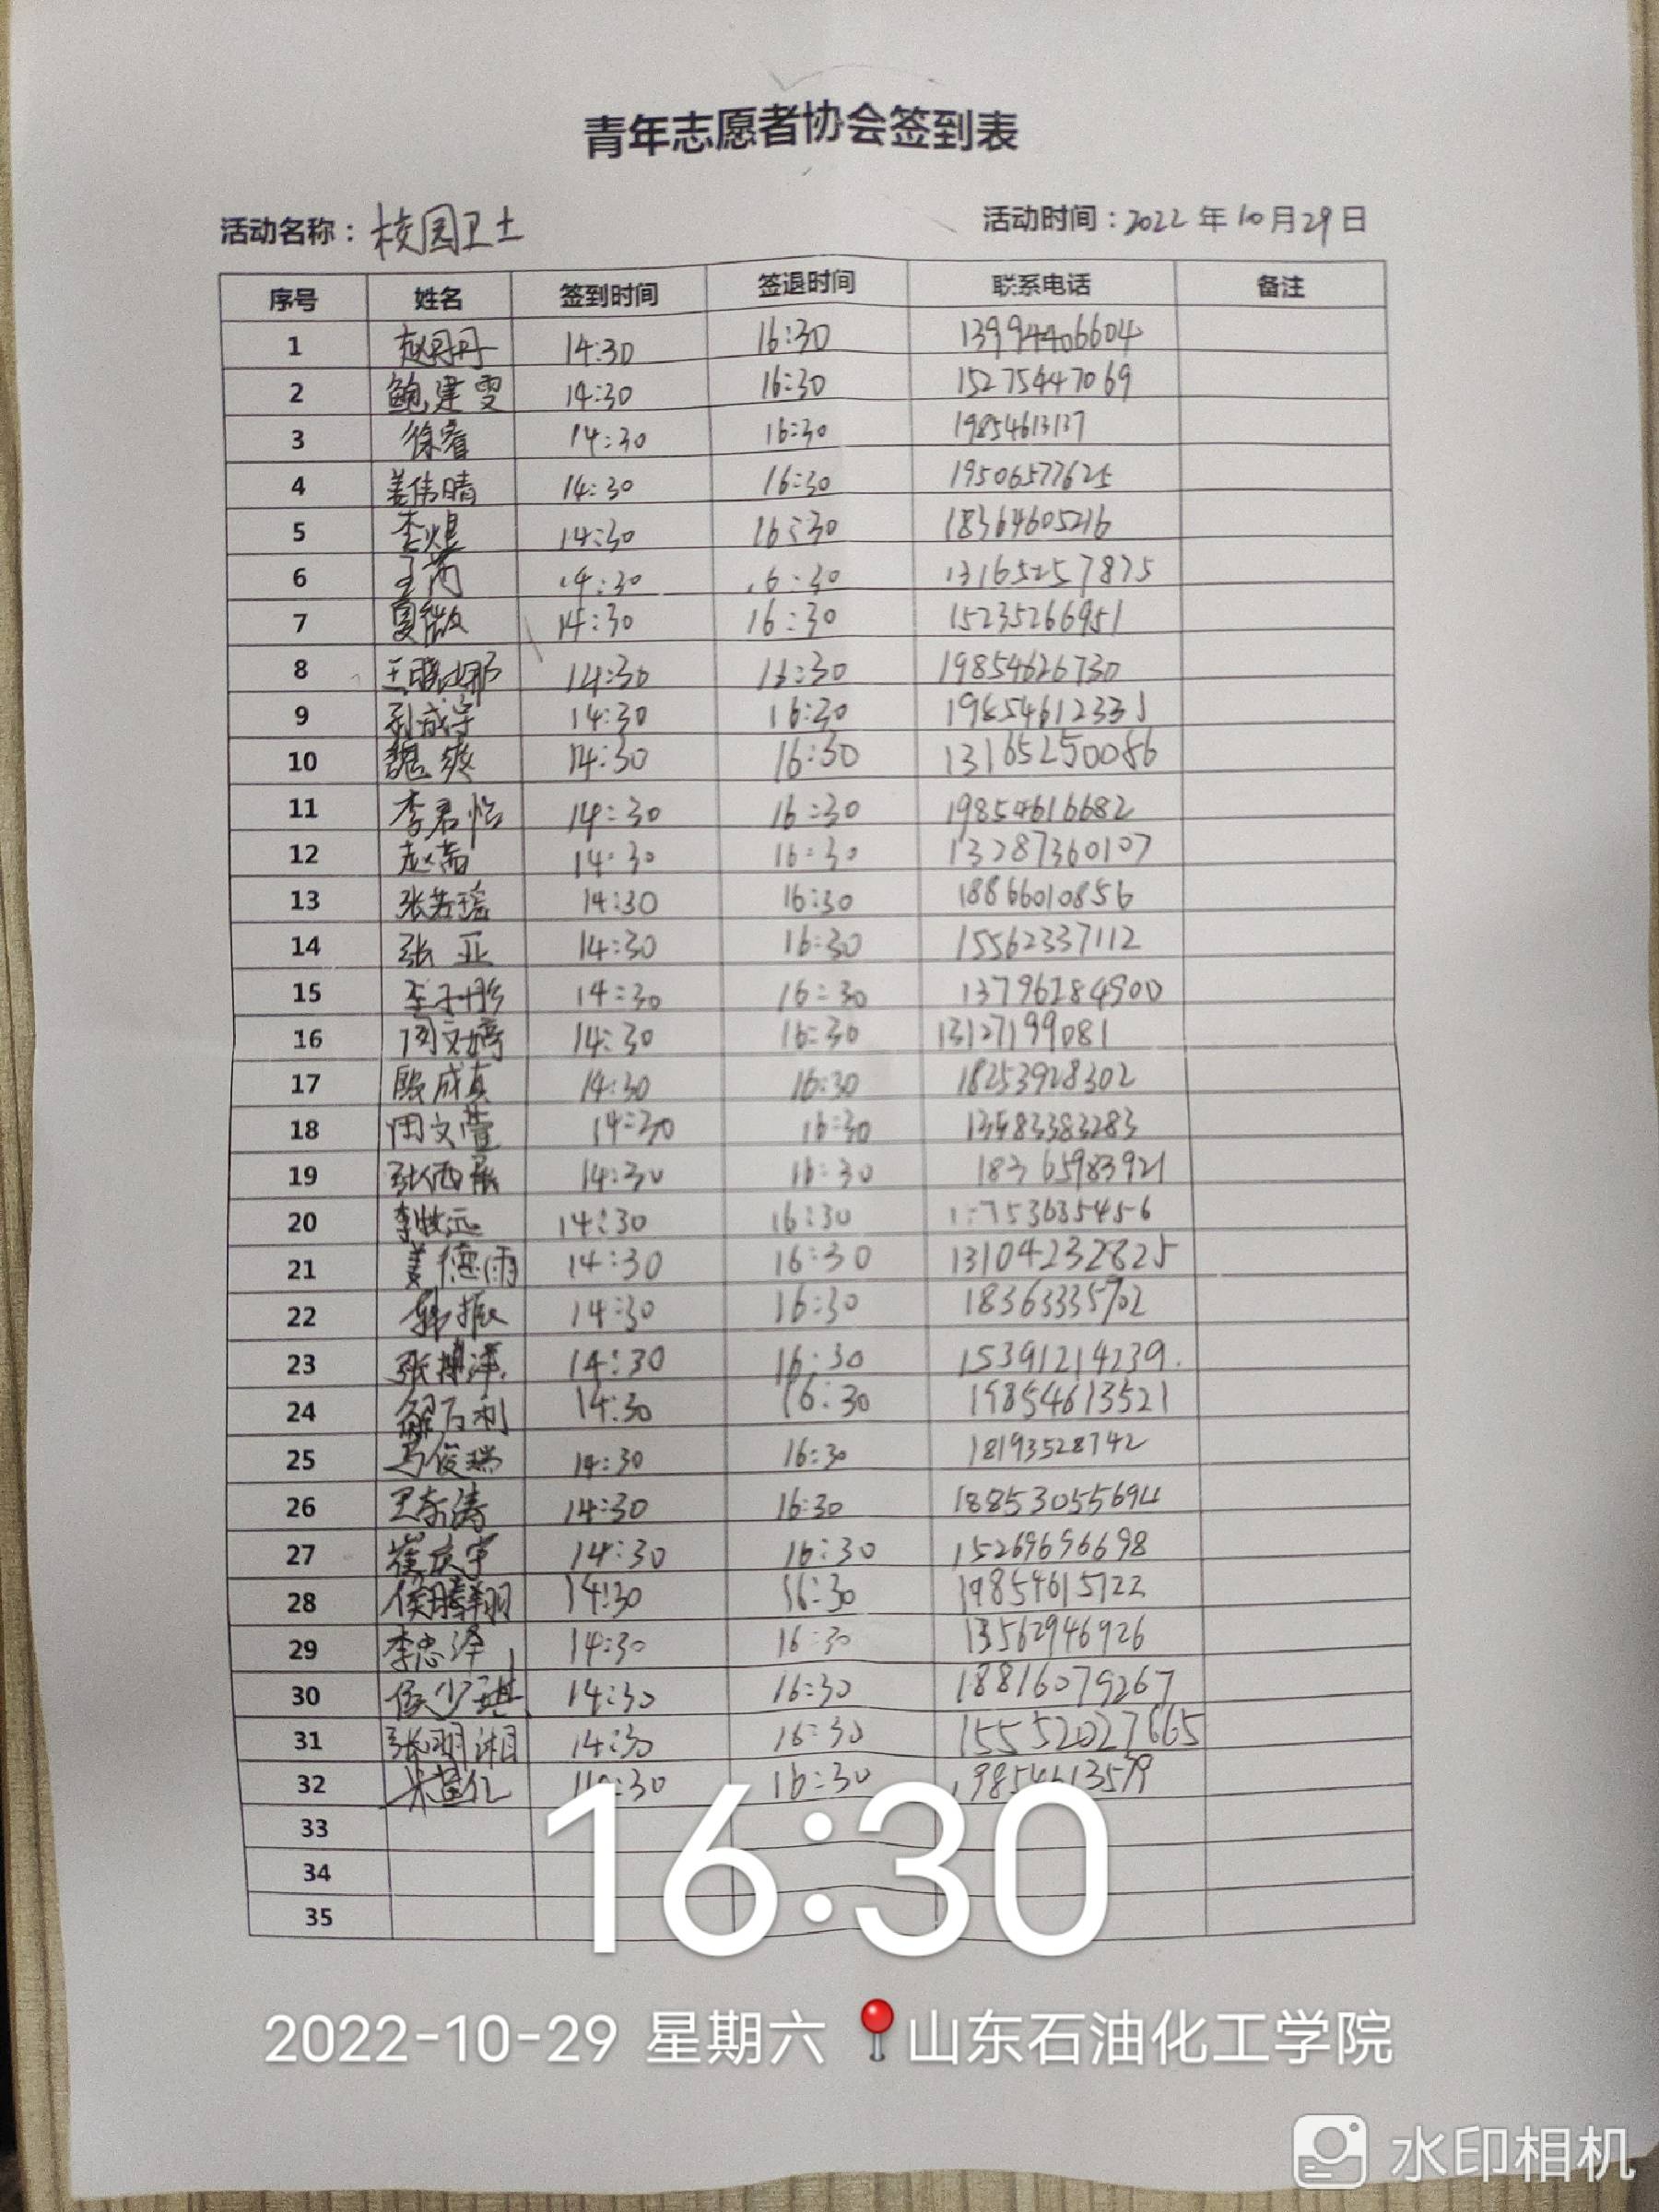 青年志愿者协会签到表
活动名称：校园卫士 活动时间：2022年10月29日
序号 姓名 签到时间 签退时间 联系电话 备注
1 赵丹丹 14:30 16:30 13994406604
2 鲍建雯 14:30 16:30 15275447069
3 徐睿 14:30 16:30 19854613137
4 姜伟晴 14:30 16:30 19506577625
5 李煜 14:30 16:30 18364605216
6 14:30 16:30 13165257875
7 夏微 14:30 16:30 15235266951
8 王晓娜 14:30 16:30 19854626730
9 孙成宇 14:30 16:30 19854612331
10 魏爽 14:30 16:30 13165250086
11 李君怡 14:30 16:30 19854616682
12 赵茜 14:30 16:30 13287360107
13 张若瑶 14:30 16:30 18866010856
14 张亚 14:30 16:30 15562337112
15 李子彤 14:30 16:30 13796284900
16 周文婷 14:30 16:30 13127199081
17 殷成真 14:30 16:30 18253928302
18 田文萱 14:30 16:30 13483383283
19 14:30 16:30 18365983921
20 李牧远 14:30 16:30
21 姜德雨 14:30 16:30 13104232825
22 韩振 14:30 16:30 18363335702
23 张博洋 14:30 16:30 15391214239
24 解万利 14:30 16:30 19854613521
25 马俊瑞 14:30 16:30 18193528742
26 14:30 16:30 18853055694
27 崔庆宇 14:30 16:30 15269696698
28 侯腾翔 14:30 16:30 19854615722
29 李忠泽 14:30 16:30 13562946926
30 侯少琪 14:30 16:30 18816079267
31 张明湘 14:30 16:30 15552027665
32 16:30 19854613579
33
34
35
16:30
2022-10-29 星期六 山东石油化工学院
水印相机